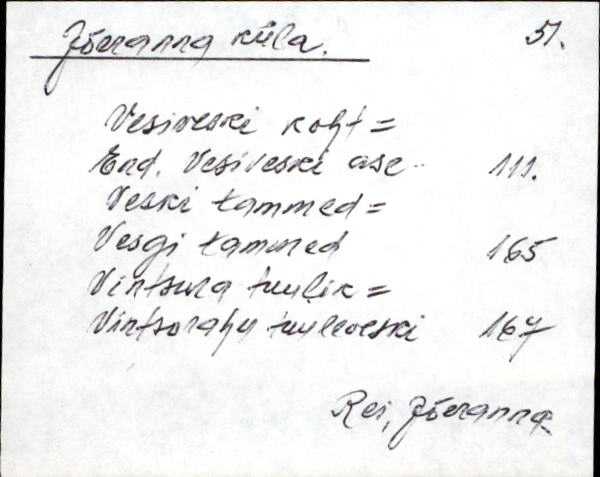 Jõeranna küla. 51.
Vesiveski koht =
End. Vesiveski ase 111.
Veski tammed =
Vesgi tammed 165
Vintsura tuulik =
Vintsorahu tuuleveski 167
Rei, Jõeranna